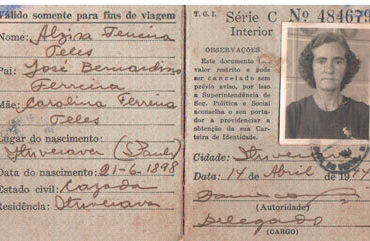 Válido somente para fins de viagem
Nome: Alzira Ferreira
Teles
Pai: José Bernardino
Ferreira
Mãe: Carolina Ferreira
Teles
Lugar do nascimento:
Ituverava (Paulo)
Data do nascimento: 21-6-1898
Estado civil: Cazada
Residência: Ituverava
T. G. I. Série C Nº 484679
Interior
OBSERVAÇÕES
Este documento
valor restrito e pode
ser cancelado sem
prévio aviso, por isso
a Superintendência de
Seg. Política e Social
aconselha o seu portador
a providenciar a
obtenção da sua Carteira
de Identidade.
Cidade:
Data, 14 de Abril de
(Autoridade)
Delegado
(CARGO)